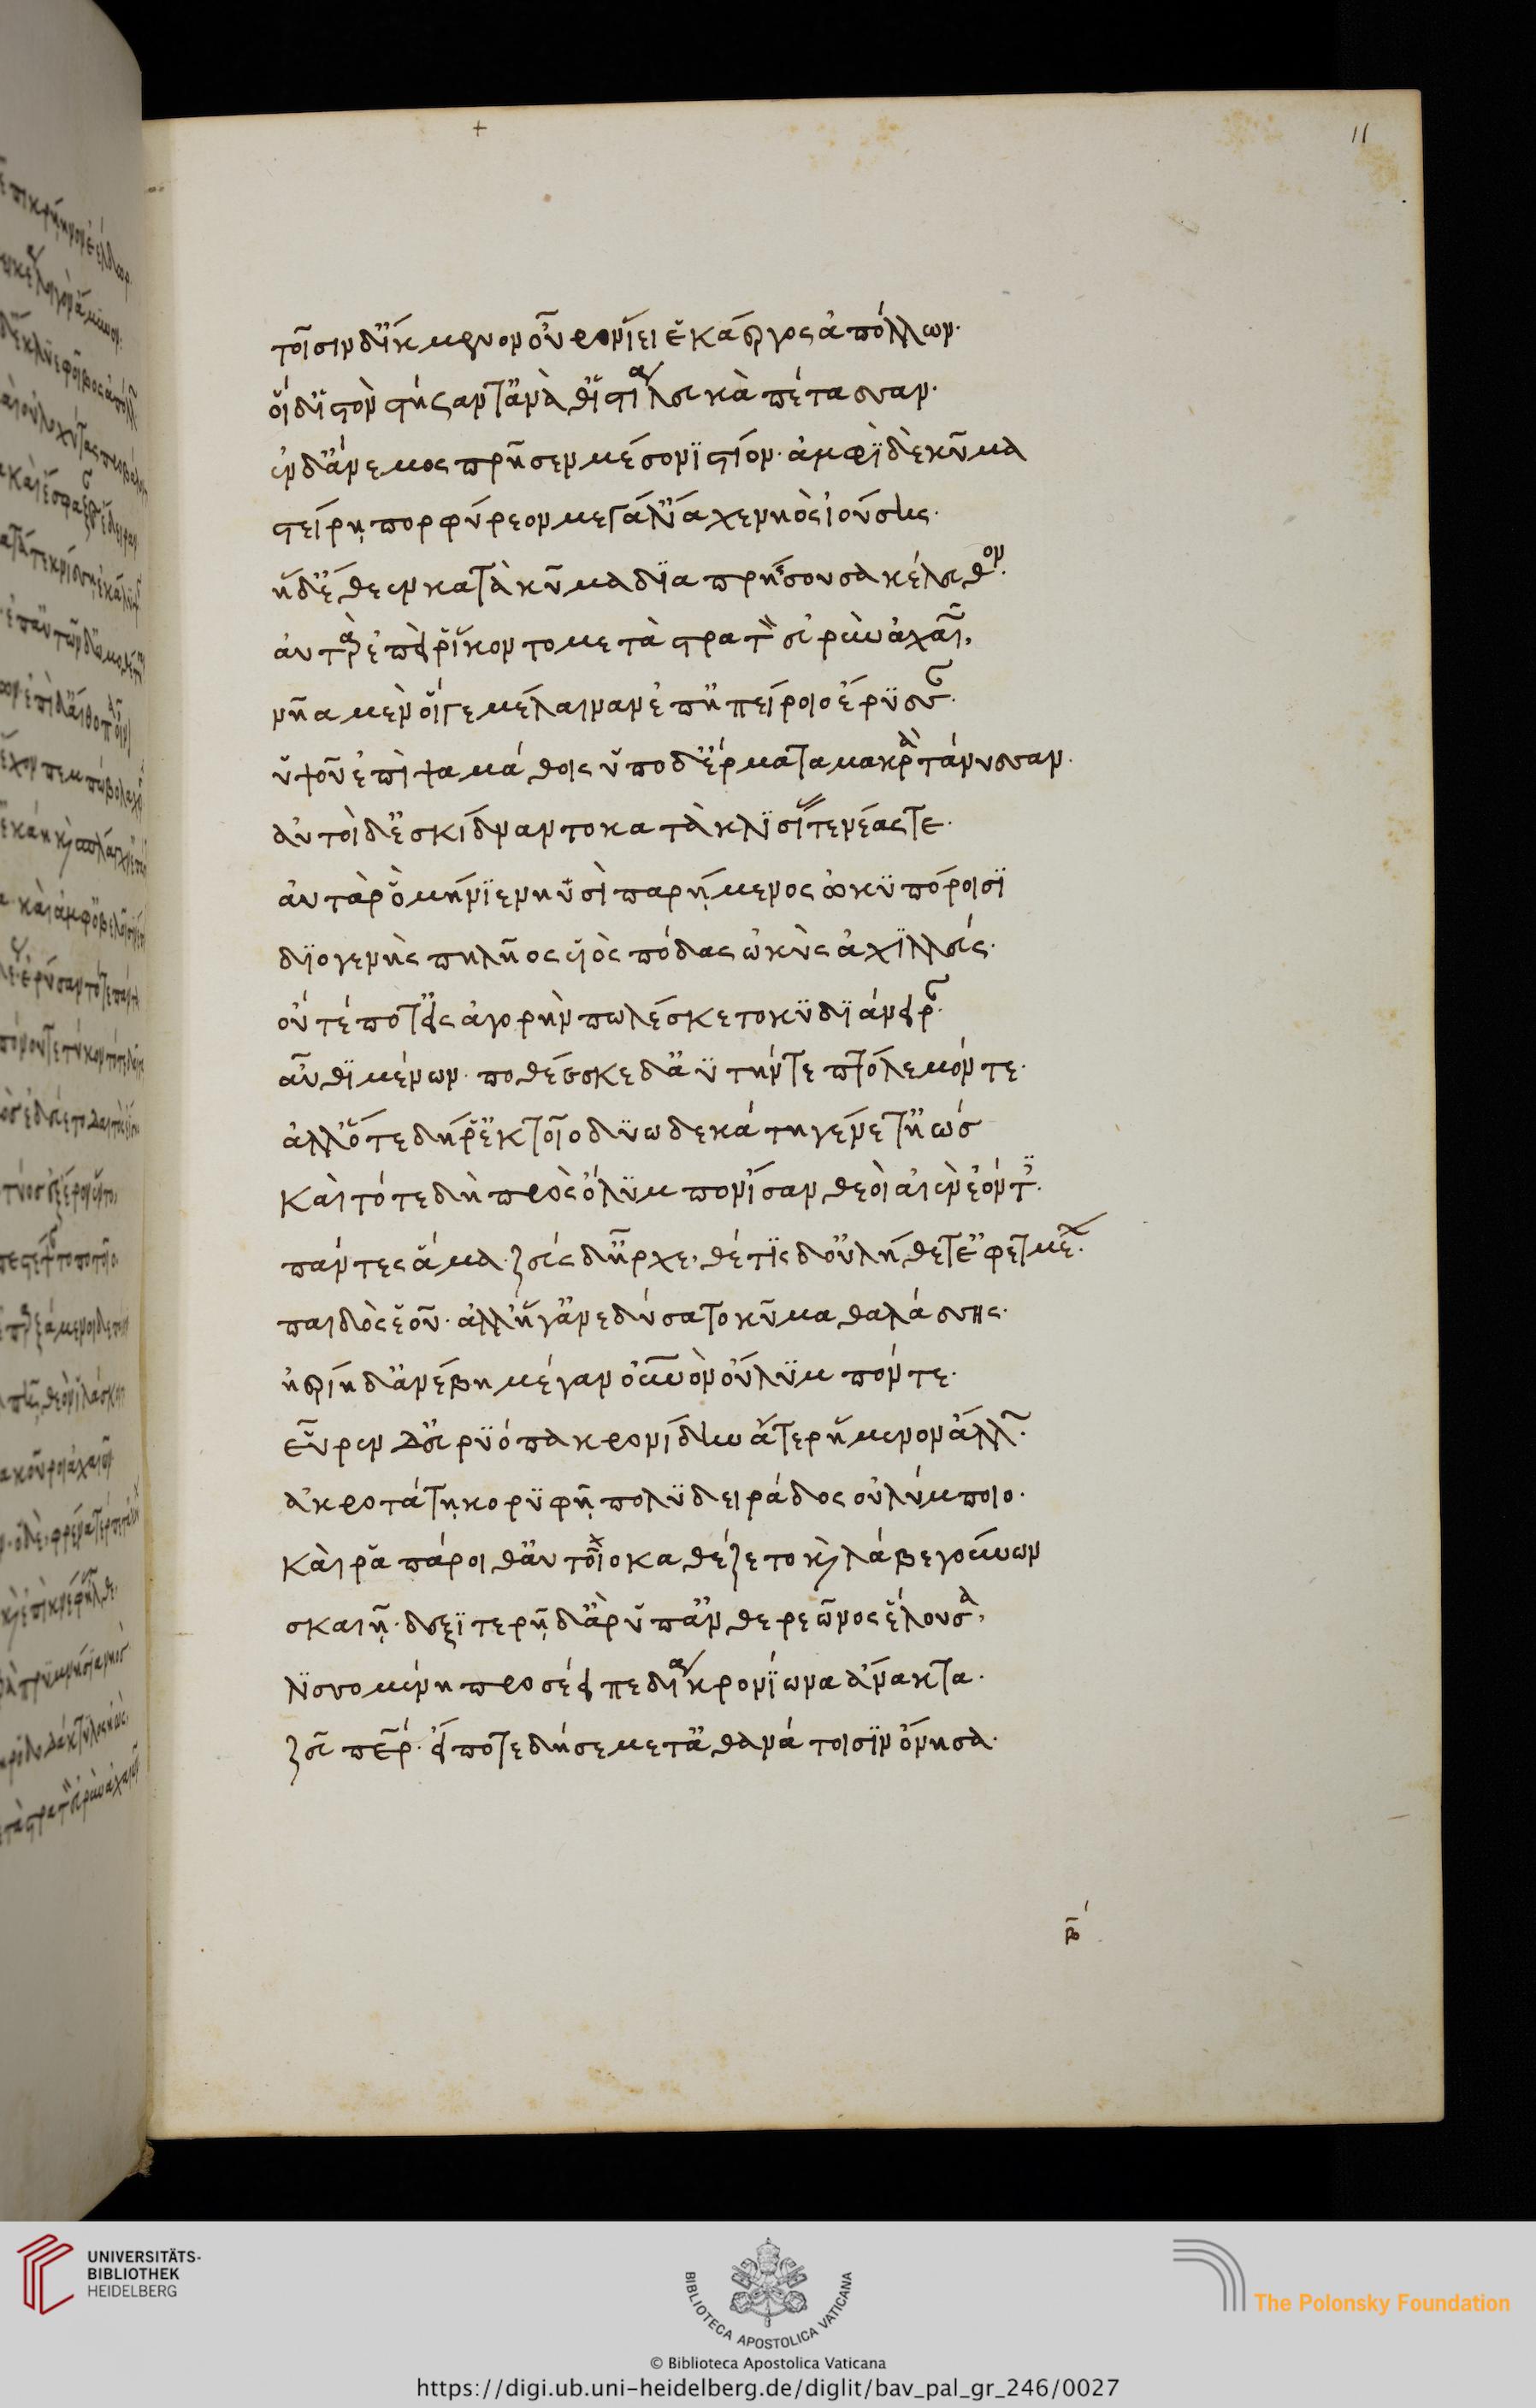 +
11
τοῖσιν δ' ἴκμενον οὖρον ἵει ἑκάεργος ἀπόλλων·
οἱ δ' ἱστὸν στήσαντ' ἀνὰ θ' ἱστία λευκὰ πέτασσαν·
ἐν δ' ἄνεμος πρῆσεν μέσον ἱστίον· ἀμφὶ δὲ κῦμα
στείρῃ πορφύρεον μεγάλ' ἴαχε νηὸς ἰούσης·
ἡ δ' ἔθεεν κατὰ κῦμα διαπρήσσουσα κέλευθον·
αὐτὰρ ἐπεί ῥ' ἵκοντο μετὰ στρατὸν εὐρὺν ἀχαιῶν,
νῆα μὲν οἵγε μέλαιναν ἐπ' ἠπείροιο ἔρυσσαν·
ὑψοῦ ἐπὶ ψαμάθοις ὑπὸ δ' ἕρματα μακρὰ τάνυσσαν·
αὐτοὶ δ' ἐσκίδναντο κατὰ κλισίας τε νέας τε·
αὐτὰρ ὁ μήνιε νηυσὶ παρήμενος ὠκυπόροισι
διογενὴς πηλῆος υἱὸς πόδας ὠκὺς ἀχιλλεύς·
οὔτέ ποτ' εἰς ἀγορὴν πωλέσκετο κυδιάνειραν·
αὖθι μένων· ποθέεσκε δ' ἀϋτήν τε πτόλεμόν τε·
ἀλλ' ὅτε δή ῥ' ἐκ τοῖο δυωδεκάτη γένετ' ἠώσ
Καὶ τότε δὴ πρὸς ὄλυμπον ἴσαν θεοὶ αἰὲν ἐόντες·
πάντες ἅμα· ζεὺς δ' ἦρχε, θέτις δ' οὐ λήθετ' ἐφετμέων·
παιδὸς ἑοῦ· ἀλλ' ἥγ' ἀνεδύσατο κῦμα θαλάσσης·
ἠερίη δ' ἀνέβη μέγαν οὐρανὸν οὔλυμπόν τε·
εὗρεν δ' εὐρύοπα κρονίδην ἄτερ ἥμενον ἄλλων·
ἀκροτάτῃ κορυφῇ πολυδειράδος οὐλύμποιο·
Καί ῥα πάροιθ' αὐτοῖο καθέζετο καὶ λάβε γούνων
σκαιῇ· δεξιτερῇ δ' ἄρ' ὑπ' ἀνθερεῶνος ἑλοῦσα,
λισσομένη προσέειπε δία κρονίωνα ἄνακτα·
ζεῦ πάτερ· εἴ ποτε δή σε μετ' ἀθανάτοισιν ὄνησα·
UNIVERSITÄTS-
BIBLIOTHEK
HEIDELBERG
BIBLIOTECA APOSTOLICA VATICANA
The Polonsky Foundation
© Biblioteca Apostolica Vaticana
https://digi.ub.uni-heidelberg.de/diglit/bav_pal_gr_246/0027